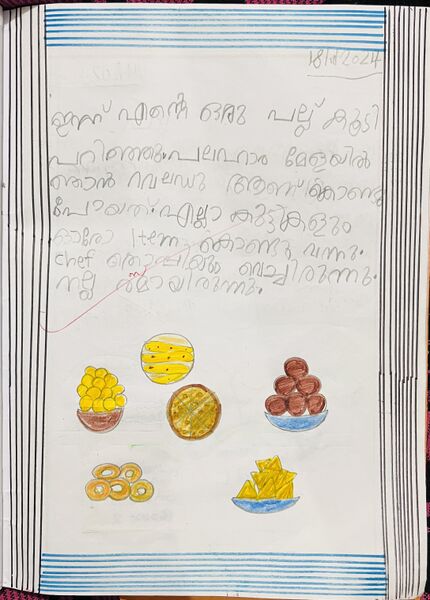 ഇന്ന് എന്റെ ഒരു പല്ല് കൂടി
പറിഞ്ഞു. പലഹാര മേളയിൽ
ഞാൻ റവലഡു ആണ് കൊണ്ടു
പോയത്. എല്ലാ കുട്ടികളും
ഓരോ Item കൊണ്ടു വന്നു.
chef തൊപ്പിയും വെച്ചിരുന്നു.
നല്ല രസമായിരുന്നു.